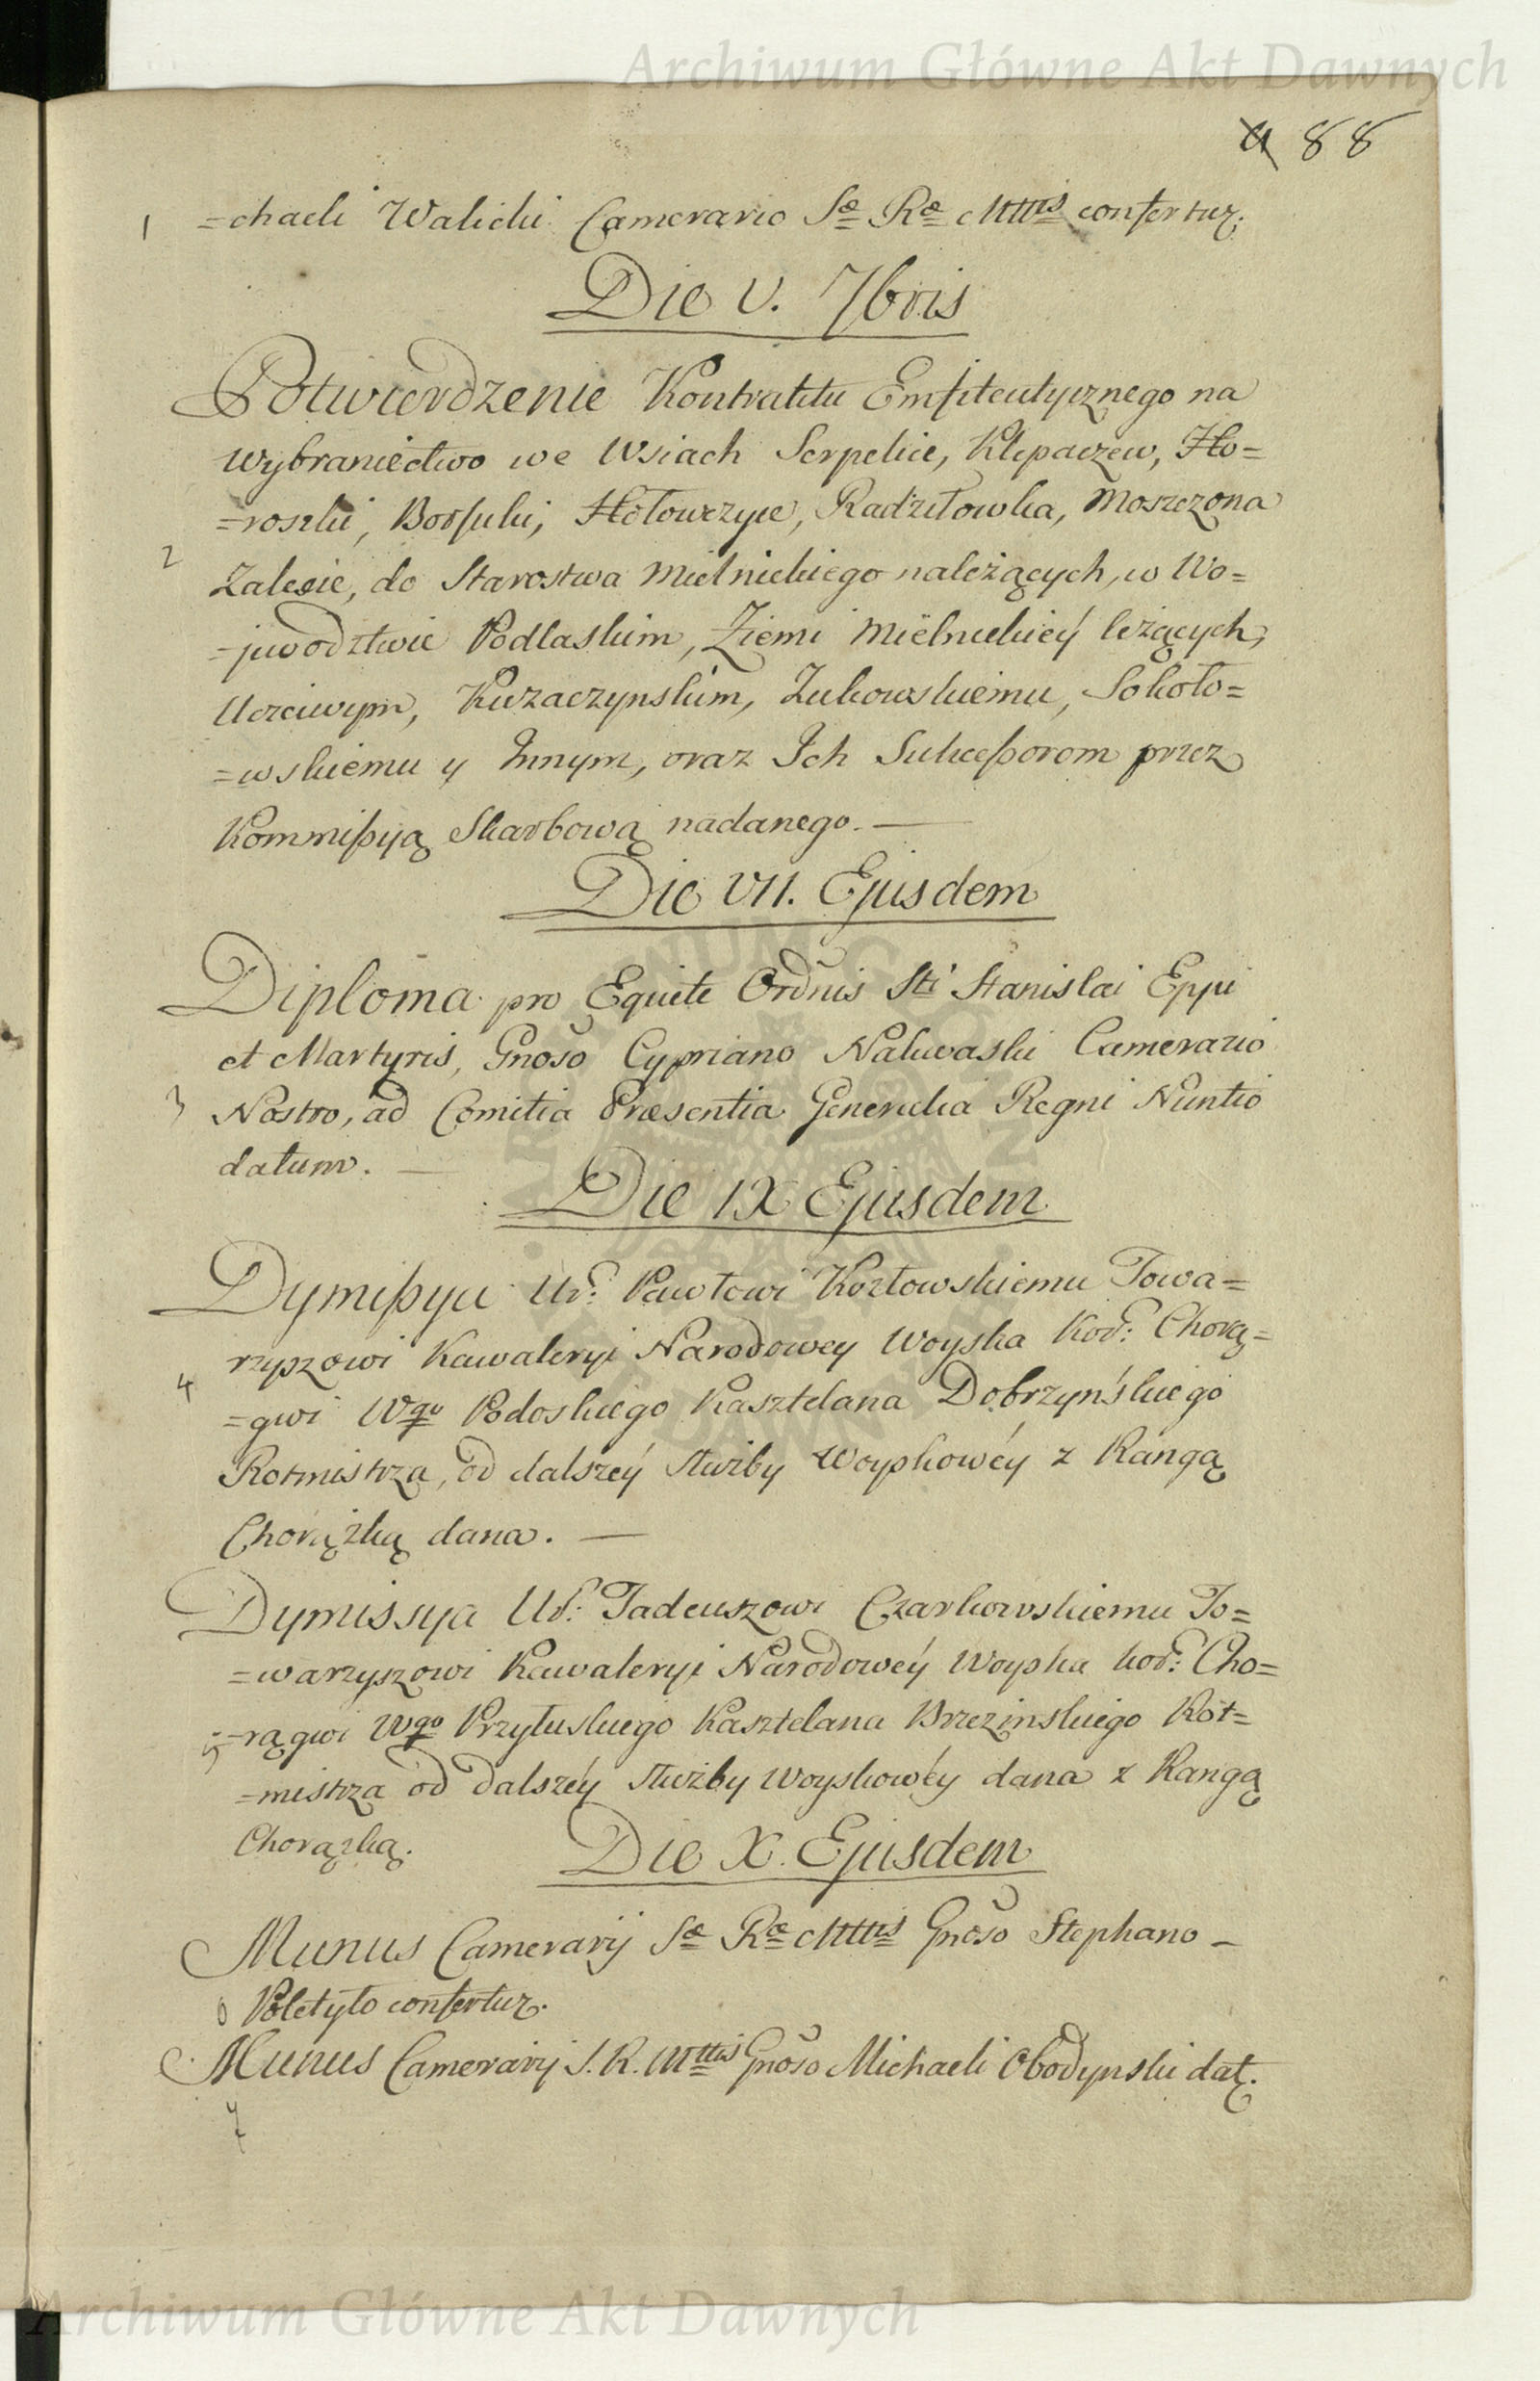 Archiwum Główne Akt Dawnych
88
1 =chaeli Walicki Camerario Sæ Ræ Mttis confertur.
Die V. 7bris
Potwierdzenie Kontraktu Emfiteutycznego na
Wybraniectwo we Wsiach Serpelice, Klepaczew, Ho=
=roszki, Borsuki, Hołowczyce, Radziłowka, Moszczona
2 Zalesie, do Starostwa Mielnickiego należących, w Wo=
=jwodztwie Podlaskim, Ziemi Mielnickiey leżących,
Uczciwym, Kuzaczynskim, Zukowskiemu, Sokoło=
=wskiemu y Innym, oraz Ich Sukceßorom przez
Kommißyją Skarbową nadanego. —
Die VII. Ejusdem
Diploma pro Equite Ordnis Sti Stanislai Eppi
et Martyris, Gnoso Cypriano Nakwaski Camerario
3 Nostro, ad Comitia Præsentia Generalia Regni Nuntio
datum. —
Die IX Ejusdem
Dymißya Ur: Pawłowi Kozłowskiemu Towa=
rzyszowi Kawaleryi Narodowey Woyska Kor: Chorą=
4 =gwi Wgo Podoskiego Kasztelana Dobrzyńskiego
Rotmistrza, od dalszéy służby Woyskowéy z Rangą
Chorążką dana. —
Dymissya Ur: Tadeuszowi Czarkowskiemu To=
=warzyszowi Kawaleryi Narodowéy Woyska kor: Cho=
5 =rągwi Wgo Przyłuskiego Kasztelana Brzezinskiego Rot=
=mistrza od dalszéy służby Woyskowéy dana z Rangą
Chorążką.
Die X. Ejusdem
Munus Camerarij Sæ Ræ Mttis Gnoso Stephano —
6 Poletyło confertur.
Munus Camerarij S. R. Mttis Gnoso Michaeli Obodynski dat.
7
Archiwum Główne Akt Dawnych